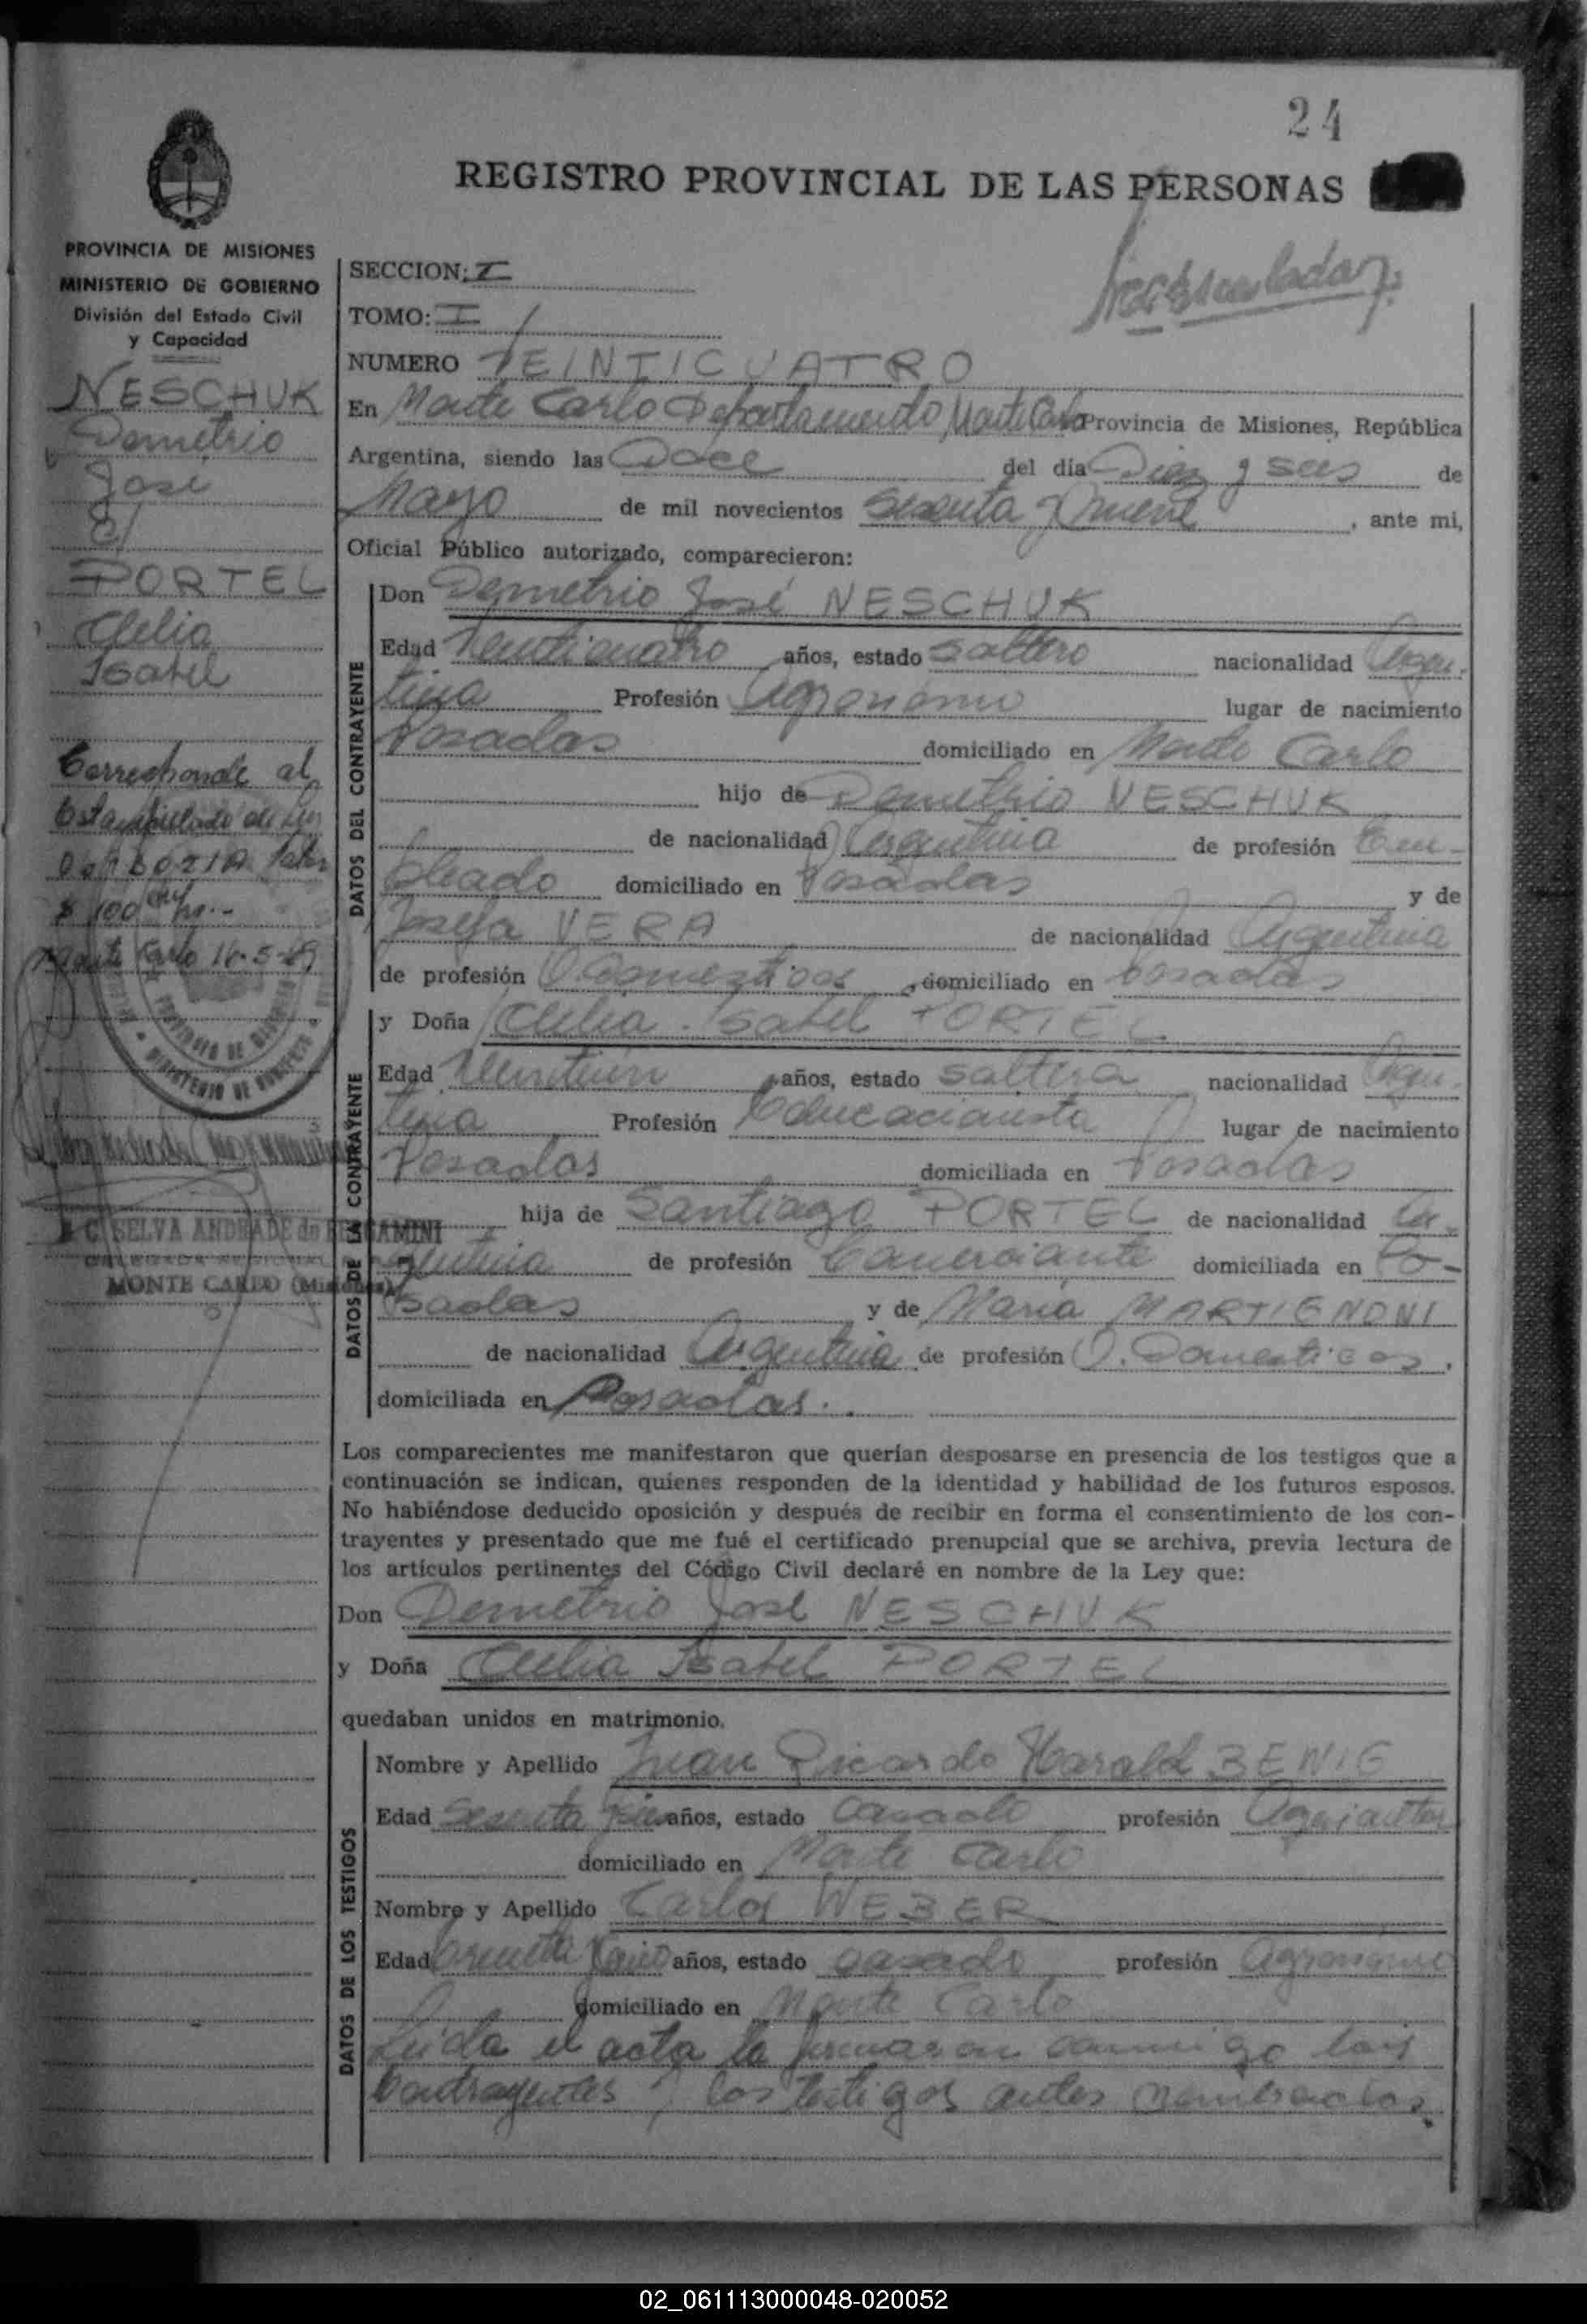 24
REGISTRO PROVINCIAL DE LAS PERSONAS
PROVINCIA DE MISIONES
MINISTERIO DE GOBIERNO
División del Estado Civil
y Capacidad
NESCHUK
Demetrio
José
c/
PORTEL
Clelia
Isabel
Corresponde al
$ 100
Monte Carlo 16-5-69
SELVA ANDRADE de
MONTE CARLO
SECCION: I
TOMO: I
NUMERO VEINTICUATRO
En Monte Carlo Departamento Monte Carlo Provincia de Misiones, República
Argentina, siendo las Doce del día Diez y seis de
Mayo de mil novecientos Sesenta y nueve, ante mi,
Oficial Público autorizado, comparecieron:
DATOS DEL CONTRAYENTE
Don Demetrio José NESCHUK
Edad Veinticuatro años, estado soltero nacionalidad Argen-
tina Profesión Agrónomo lugar de nacimiento
Posadas domiciliado en Monte Carlo
hijo de Demetrio NESCHUK
de nacionalidad Argentina de profesión Em-
pleado domiciliado en Posadas y de
Josefa VERA de nacionalidad Argentina
de profesión Q. Domésticos, domiciliado en Posadas
DATOS DE LA CONTRAYENTE
y Doña Clelia Isabel PORTEL
Edad Veintiún años, estado soltera nacionalidad Argen-
tina Profesión Educacionista lugar de nacimiento
Posadas domiciliada en Posadas
hija de Santiago PORTEL de nacionalidad Ar-
gentina de profesión Comerciante domiciliada en Po-
sadas y de María MARTIENONI
de nacionalidad Argentina de profesión Q. Domesticos,
domiciliada en Posadas.
Los comparecientes me manifestaron que querían desposarse en presencia de los testigos que a
continuación se indican, quienes responden de la identidad y habilidad de los futuros esposos.
No habiéndose deducido oposición y después de recibir en forma el consentimiento de los con-
trayentes y presentado que me fué el certificado prenupcial que se archiva, previa lectura de
los artículos pertinentes del Código Civil declaré en nombre de la Ley que:
Don Demetrio José NESCHUK
y Doña Clelia Isabel PORTEL
quedaban unidos en matrimonio.
DATOS DE LOS TESTIGOS
Nombre y Apellido Juan Ricardo Harald BENIG
Edad Sesenta años, estado casado profesión Agricultor
domiciliado en Monte Carlo
Nombre y Apellido Carlos WEBER
Edad años, estado casado profesión agrónomo
domiciliado en Monte Carlo
Leida el acta la firmaron conmigo los
contrayentes y los testigos antes nombrados.
02_061113000048-020052